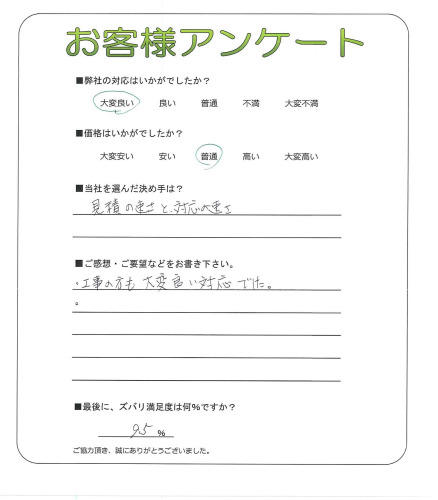 お客様アンケート
■弊社の対応はいかがでしたか？
大変良い 良い 普通 不満 大変不満
■価格はいかがでしたか？
大変安い 安い 普通 高い 大変高い
■当社を選んだ決め手は？
見積の速さと、対応の速さ
■ご感想・ご要望などをお書き下さい。
・工事の方も大変良い対応でした。
。
■最後に、ズバリ満足度は何%ですか？
95 %
ご協力頂き、誠にありがとうございました。